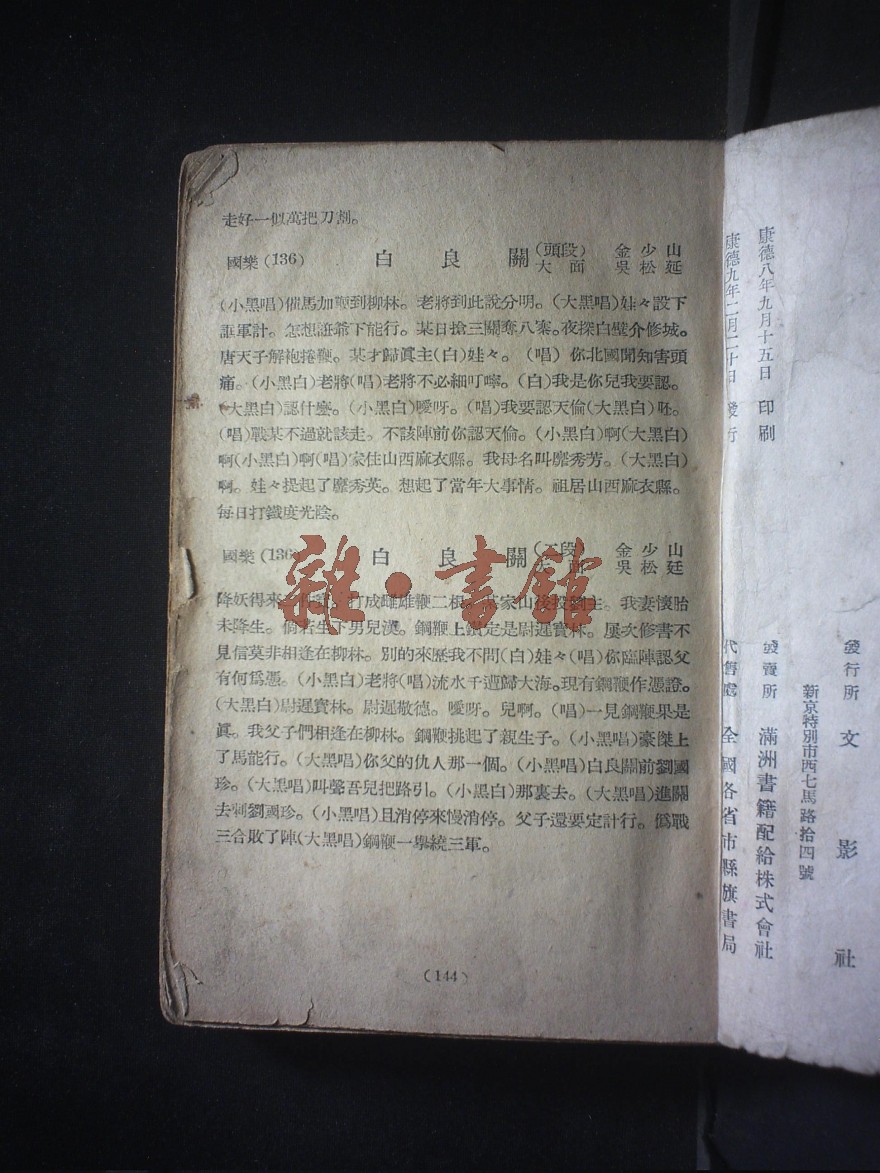 走好一似萬把刀割。
國樂(136) 白良關 (頭段) 大面 金少山 吳松延
(小黑唱)催馬加鞭到柳林。老將到此說分明。(大黑唱)娃々設下
誆軍計。怎想誆爺下能行。某日搶三關奪八寨。夜探白壁介修城。
唐天子解袍捲鞭。某才歸眞主(白)娃々。(唱)你北國聞知害頭
痛。(小黑白)老將(唱)老將不必細叮嚀。(白)我是你兒我要認。
(大黑白)認什麼。(小黑白)噯呀。(唱)我要認天倫(大黑白)呸。
(唱)戰某不過就該走。不該陣前你認天倫。(小黑白)啊(大黑白)
啊(小黑白)啊(唱)家住山西麻衣縣。我母名叫靡秀芳。(大黑白)
啊。娃々提起了靡秀英。想起了當年大事情。祖居山西麻衣縣。
每日打鐵度光陰。
國樂(136) 白良關 (二段) 大面 金少山 吳松延
降妖得來 打成雌雄鞭二根。家山後投劉主。我妻懷胎
未降生。倘若生下男兒漢。鋼鞭上鎸定是尉遲寶林。屢次修書不
見信莫非相逢在柳林。別的來歷我不問(白)娃々(唱)你臨陣認父
有何爲憑。(小黑白)老將(唱)流水千遭歸大海。現有鋼鞭作憑證。
(大黑白)尉遲寶林。尉遲敬德。噯呀。兒啊。(唱)一見鋼鞭果是
眞。我父子們相逢在柳林。鋼鞭挑起了親生子。(小黑唱)豪傑上
了馬能行。(大黑唱)你父的仇人那一個。(小黑唱)白良關前劉國
珍。(大黑唱)叫聲吾兒把路引。(小黑白)那裏去。(大黑唱)進關
去刺劉國珍。(小黑唱)且消停來慢消停。父子還要定計行。僞戰
三合敗了陣(大黑唱)鋼鞭一舉繞三軍。
(144)
雜·書館
康德八年九月十五日 印刷
康德九年二月二十日 發行
發行所 文影社
新京特別市西七馬路拾四號
發賣所 滿洲書籍配給株式會社
代售處 全國各省市縣旗書局